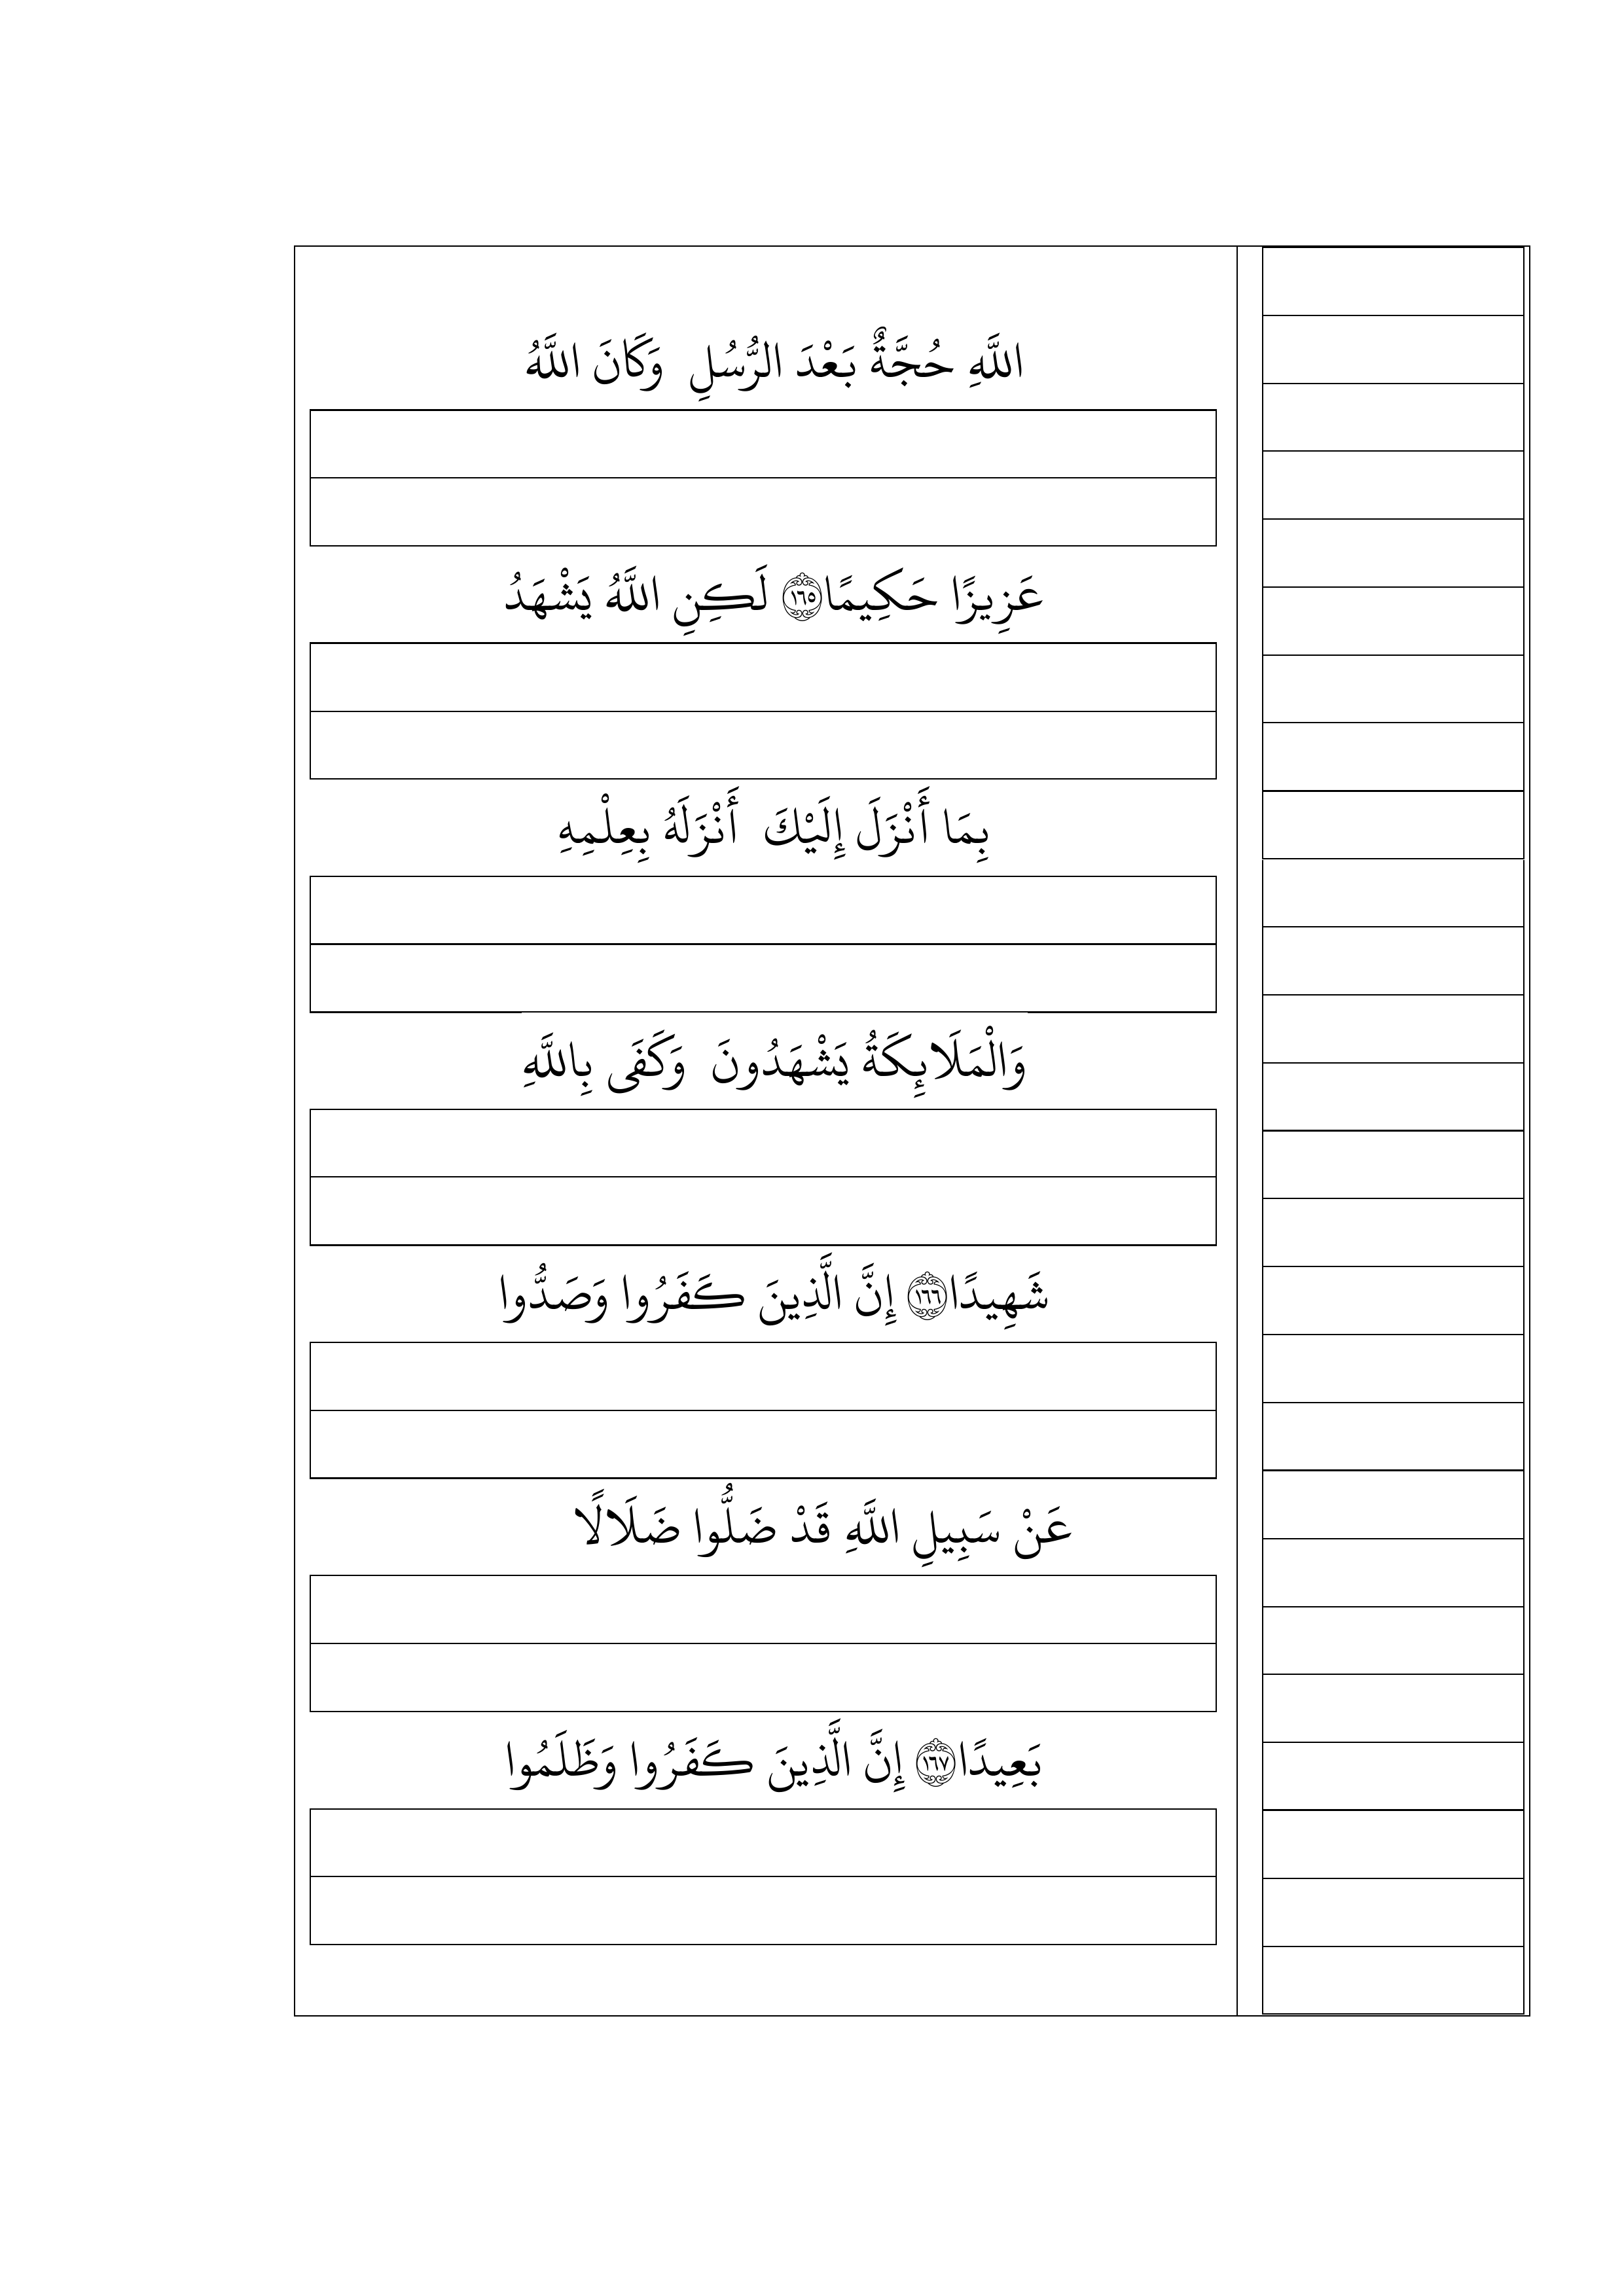 اللَّهِ حُجَّةٌ بَعْدَ الرُّسُلِ وَكَانَ اللَّهُ
عَزِيزًا حَكِيمًا ١٦٥ لَكِنِ اللَّهُ يَشْهَدُ
بِمَا أَنْزَلَ إِلَيْكَ أَنْزَلَهُ بِعِلْمِهِ
وَالْمَلَائِكَةُ يَشْهَدُونَ وَكَفَى بِاللَّهِ
شَهِيدًا ١٦٦ إِنَّ الَّذِينَ كَفَرُوا وَصَدُّوا
عَنْ سَبِيلِ اللَّهِ قَدْ ضَلُّوا ضَلَالًا
بَعِيدًا ١٦٧ إِنَّ الَّذِينَ كَفَرُوا وَظَلَمُوا